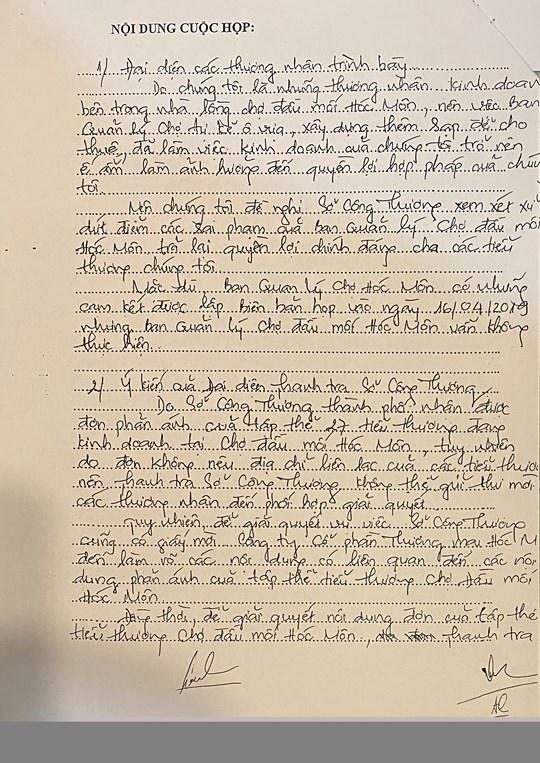 NỘI DUNG CUỘC HỌP:
1/ Đại diện các thương nhân trình bày
Do chúng tôi là những thương nhân kinh doan
bên trong nhà lồng chợ đầu mối Hóc Môn, nên việc Ban
Quản lý Chợ tự kẻ ô vựa, xây dựng thêm sạp để cho
thuê, đã làm việc kinh doanh của chúng tôi trở nên
ế ẩm làm ảnh hưởng đến quyền lợi hợp pháp của chún
tôi.
Nên chúng tôi đề nghị Sở Công Thương xem xét xử
dứt điểm các sai phạm của Ban Quản lý Chợ đầu mối
Hóc Môn trả lại quyền lợi chính đáng cho các tiểu
thương chúng tôi
Mặc dù, Ban Quản lý Chợ Hóc Môn có những
cam kết được lập Biên bản họp vào ngày 16/04/2019
nhưng Ban Quản lý Chợ đầu mối Hóc Môn vẫn không
thực hiện.
2/ Ý kiến của Đại diện thanh tra Sở Công Thương
Do Sở Công Thương thành phố nhận được
đơn phản ánh của tập thể 27 tiểu thương đang
kinh doanh tại Chợ đầu mối Hóc Môn, tuy nhiên
do đơn không nêu địa chỉ liên lạc của các tiểu thươ
nên Thanh tra Sở Công Thương không thể gửi thư mời
các thương nhân đến phối hợp giải quyết.
Tuy nhiên, để giải quyết vụ việc Sở Công Thương
cũng có giấy mời Công ty Cổ phần Thương mại Hóc M
đến làm rõ các nội dung có liên quan đến các nội
dung phản ánh của tập thể tiểu thương Chợ Đầu mối
Hóc Môn
Đồng thời, để giải quyết nội dung đơn của tập thể
tiểu thương Chợ đầu mối Hóc Môn, Thanh tra